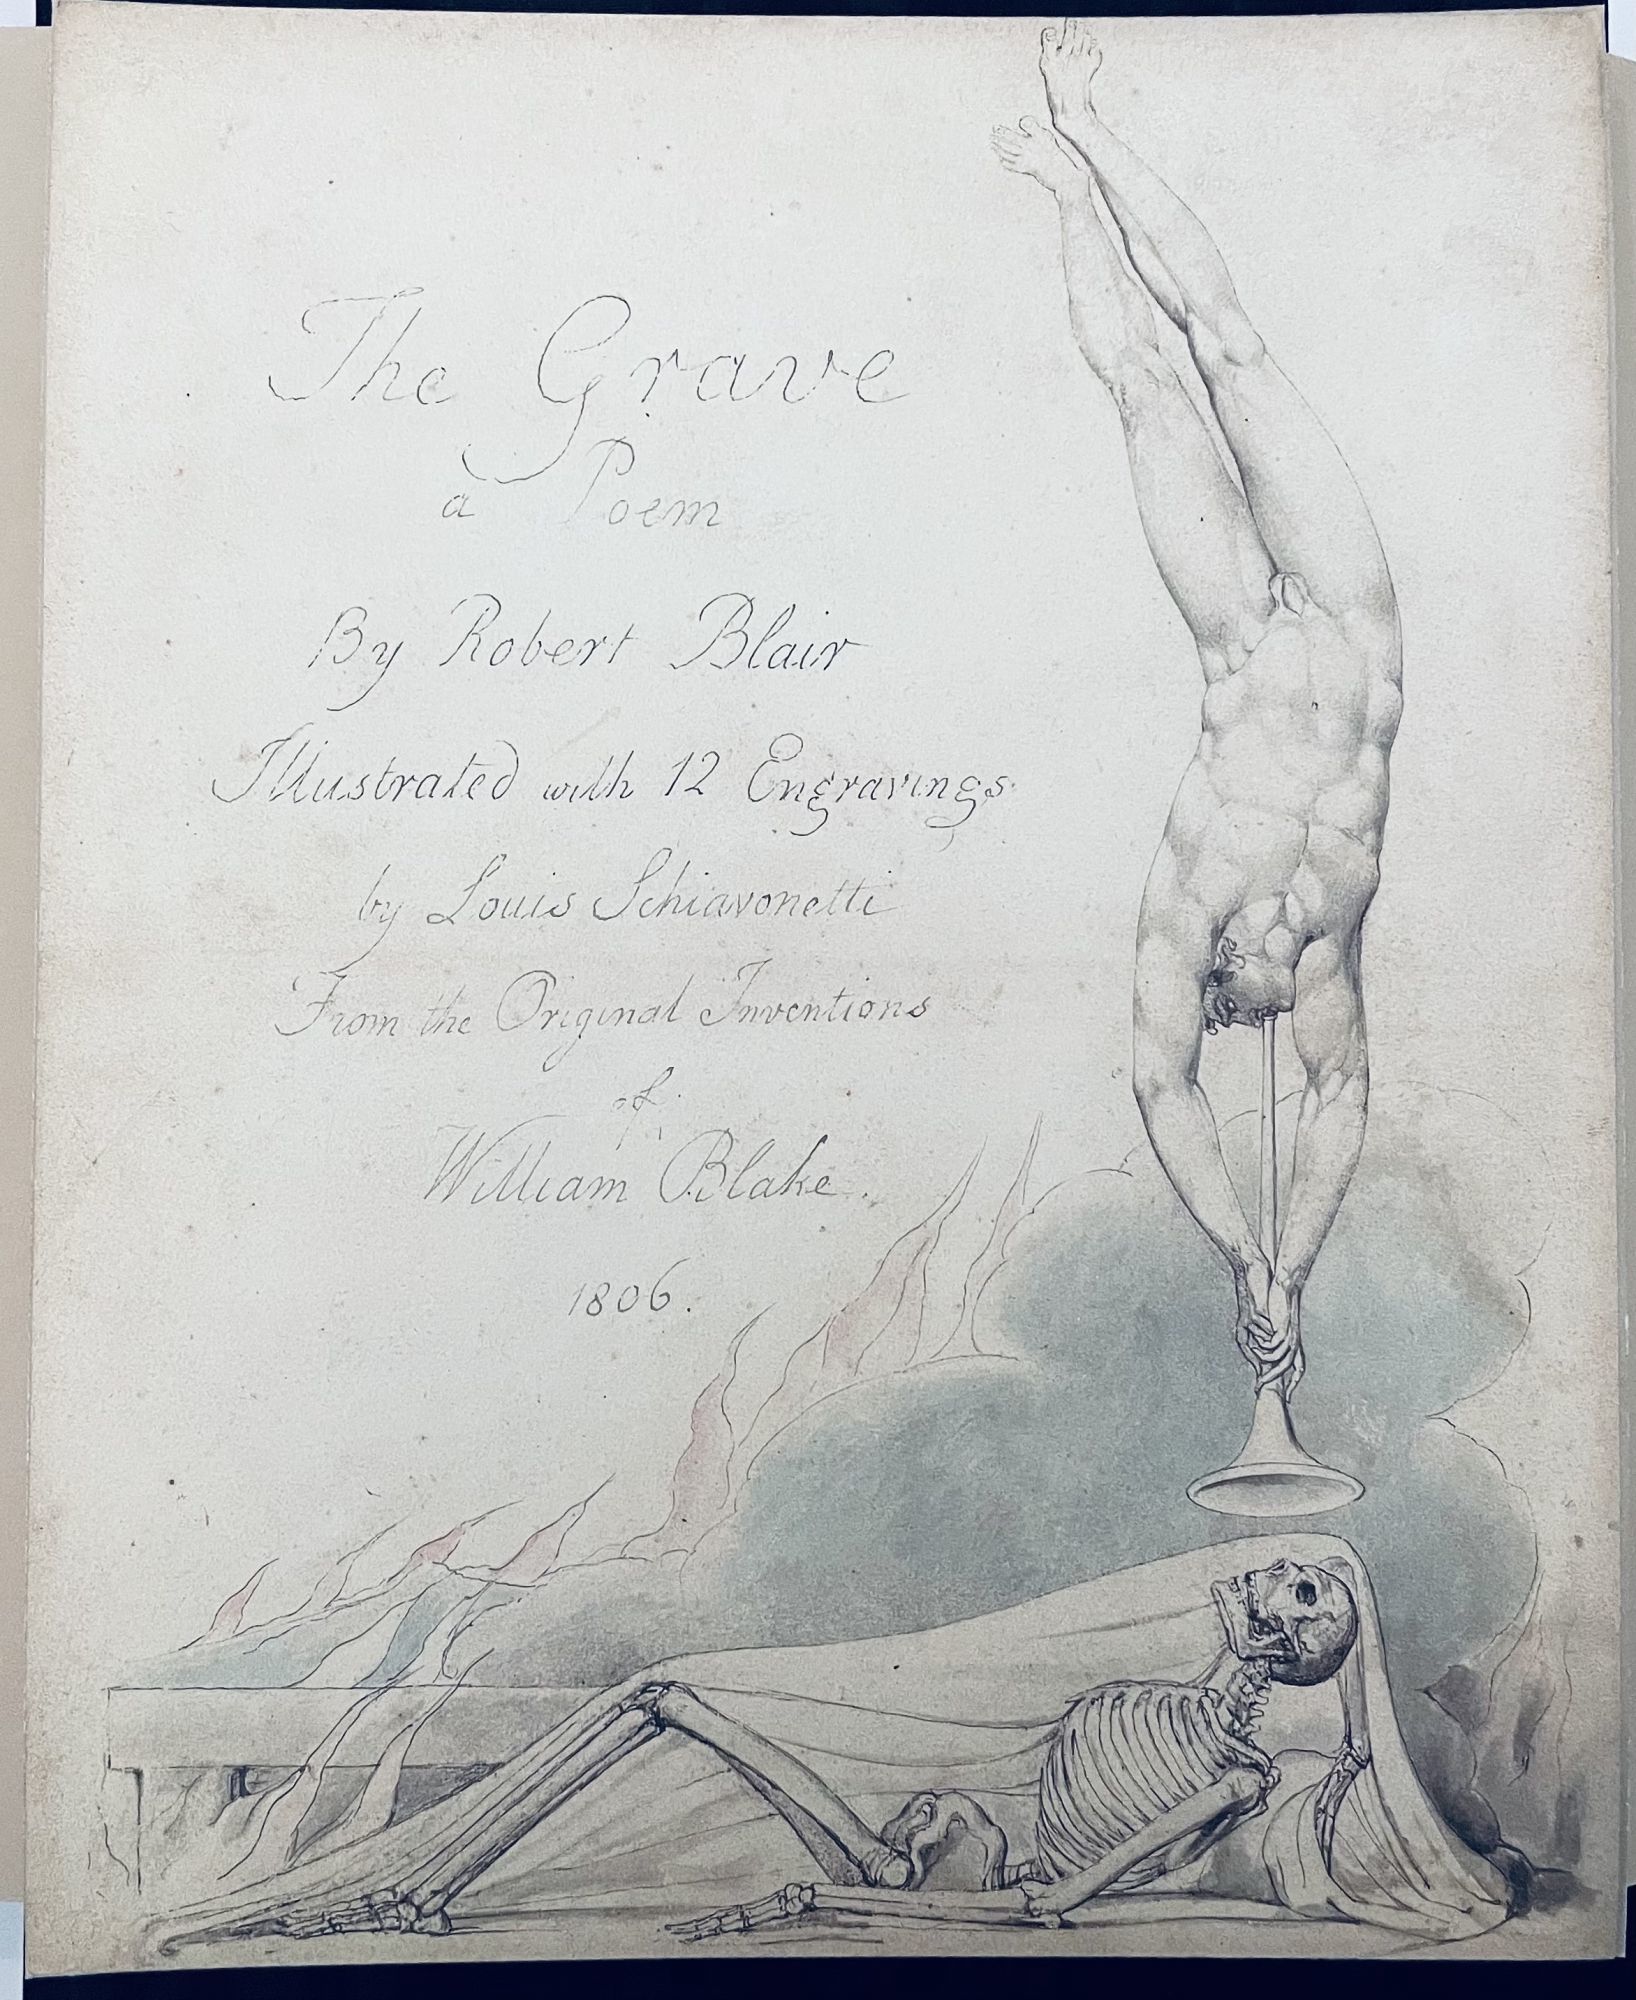 The Grave
a Poem
By Robert Blair
Illustrated with 12 Engravings
by Louis Schiavonetti
From the Original Inventions
of
William Blake.
1806.